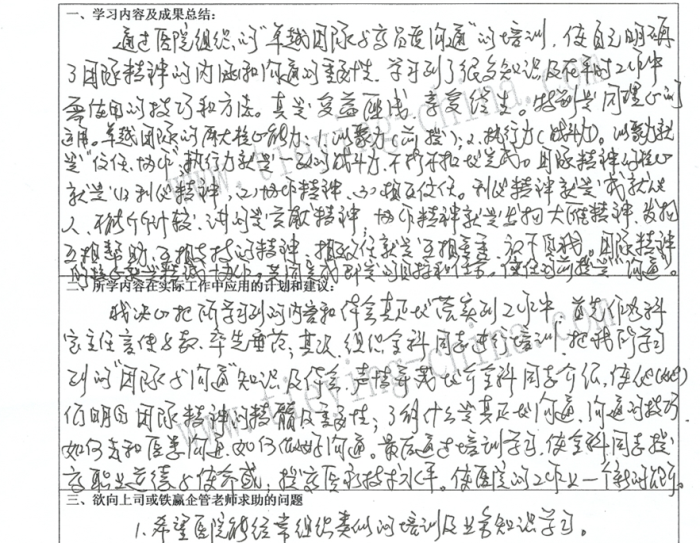 一、学习内容及成果总结:
通过医院组织的“卓越团队与高品质沟通”的培训,使自己明确
了团队精神的内涵和沟通的重要性,学习到了很多知识及在平时工作中
要使用的技巧和方法。真是受益匪浅,享受终生。特别是同理心的
运用。卓越团队的两大核心能力:1、凝聚力(前提);2、执行力(战斗力)。凝聚力就
是“信任、协作”,执行力就是一致的战斗力,不折不扣地完成。团队精神的核心
就是(1)利他精神,(2)协作精神,(3)相互信任。利他精神就是成就他
人、不能斤斤计较,讲的是贡献精神,协作精神就是发扬大雁精神,发扬
互相帮助、互相支持的精神,相互信任就是互相尊重,
二、所学内容在实际工作中应用的计划和建议:
我决心把所学习到的内容和体会真正地落实到工作中,首先作为科
室主任言传身教,率先垂范;其次,组织全科同志进行培训,把我所学习
到的“团队与沟通”知识及体会,声情并茂地给全科同志介绍,使他(她)
们明白团队精神的精髓及重要性;了解什么是真正地沟通,沟通的技巧,
如何去和医患沟通,如何做好沟通。最后通过培训学习,使全科同志提
高职业道德与使命感,提高医疗技术水平。使医院的工作上一个新的
三、欲向上司或铁赢企管老师求助的问题
1.希望医院能经常组织类似的培训及业务知识学习。
www.tieying-china.com
www.tieying-china.com